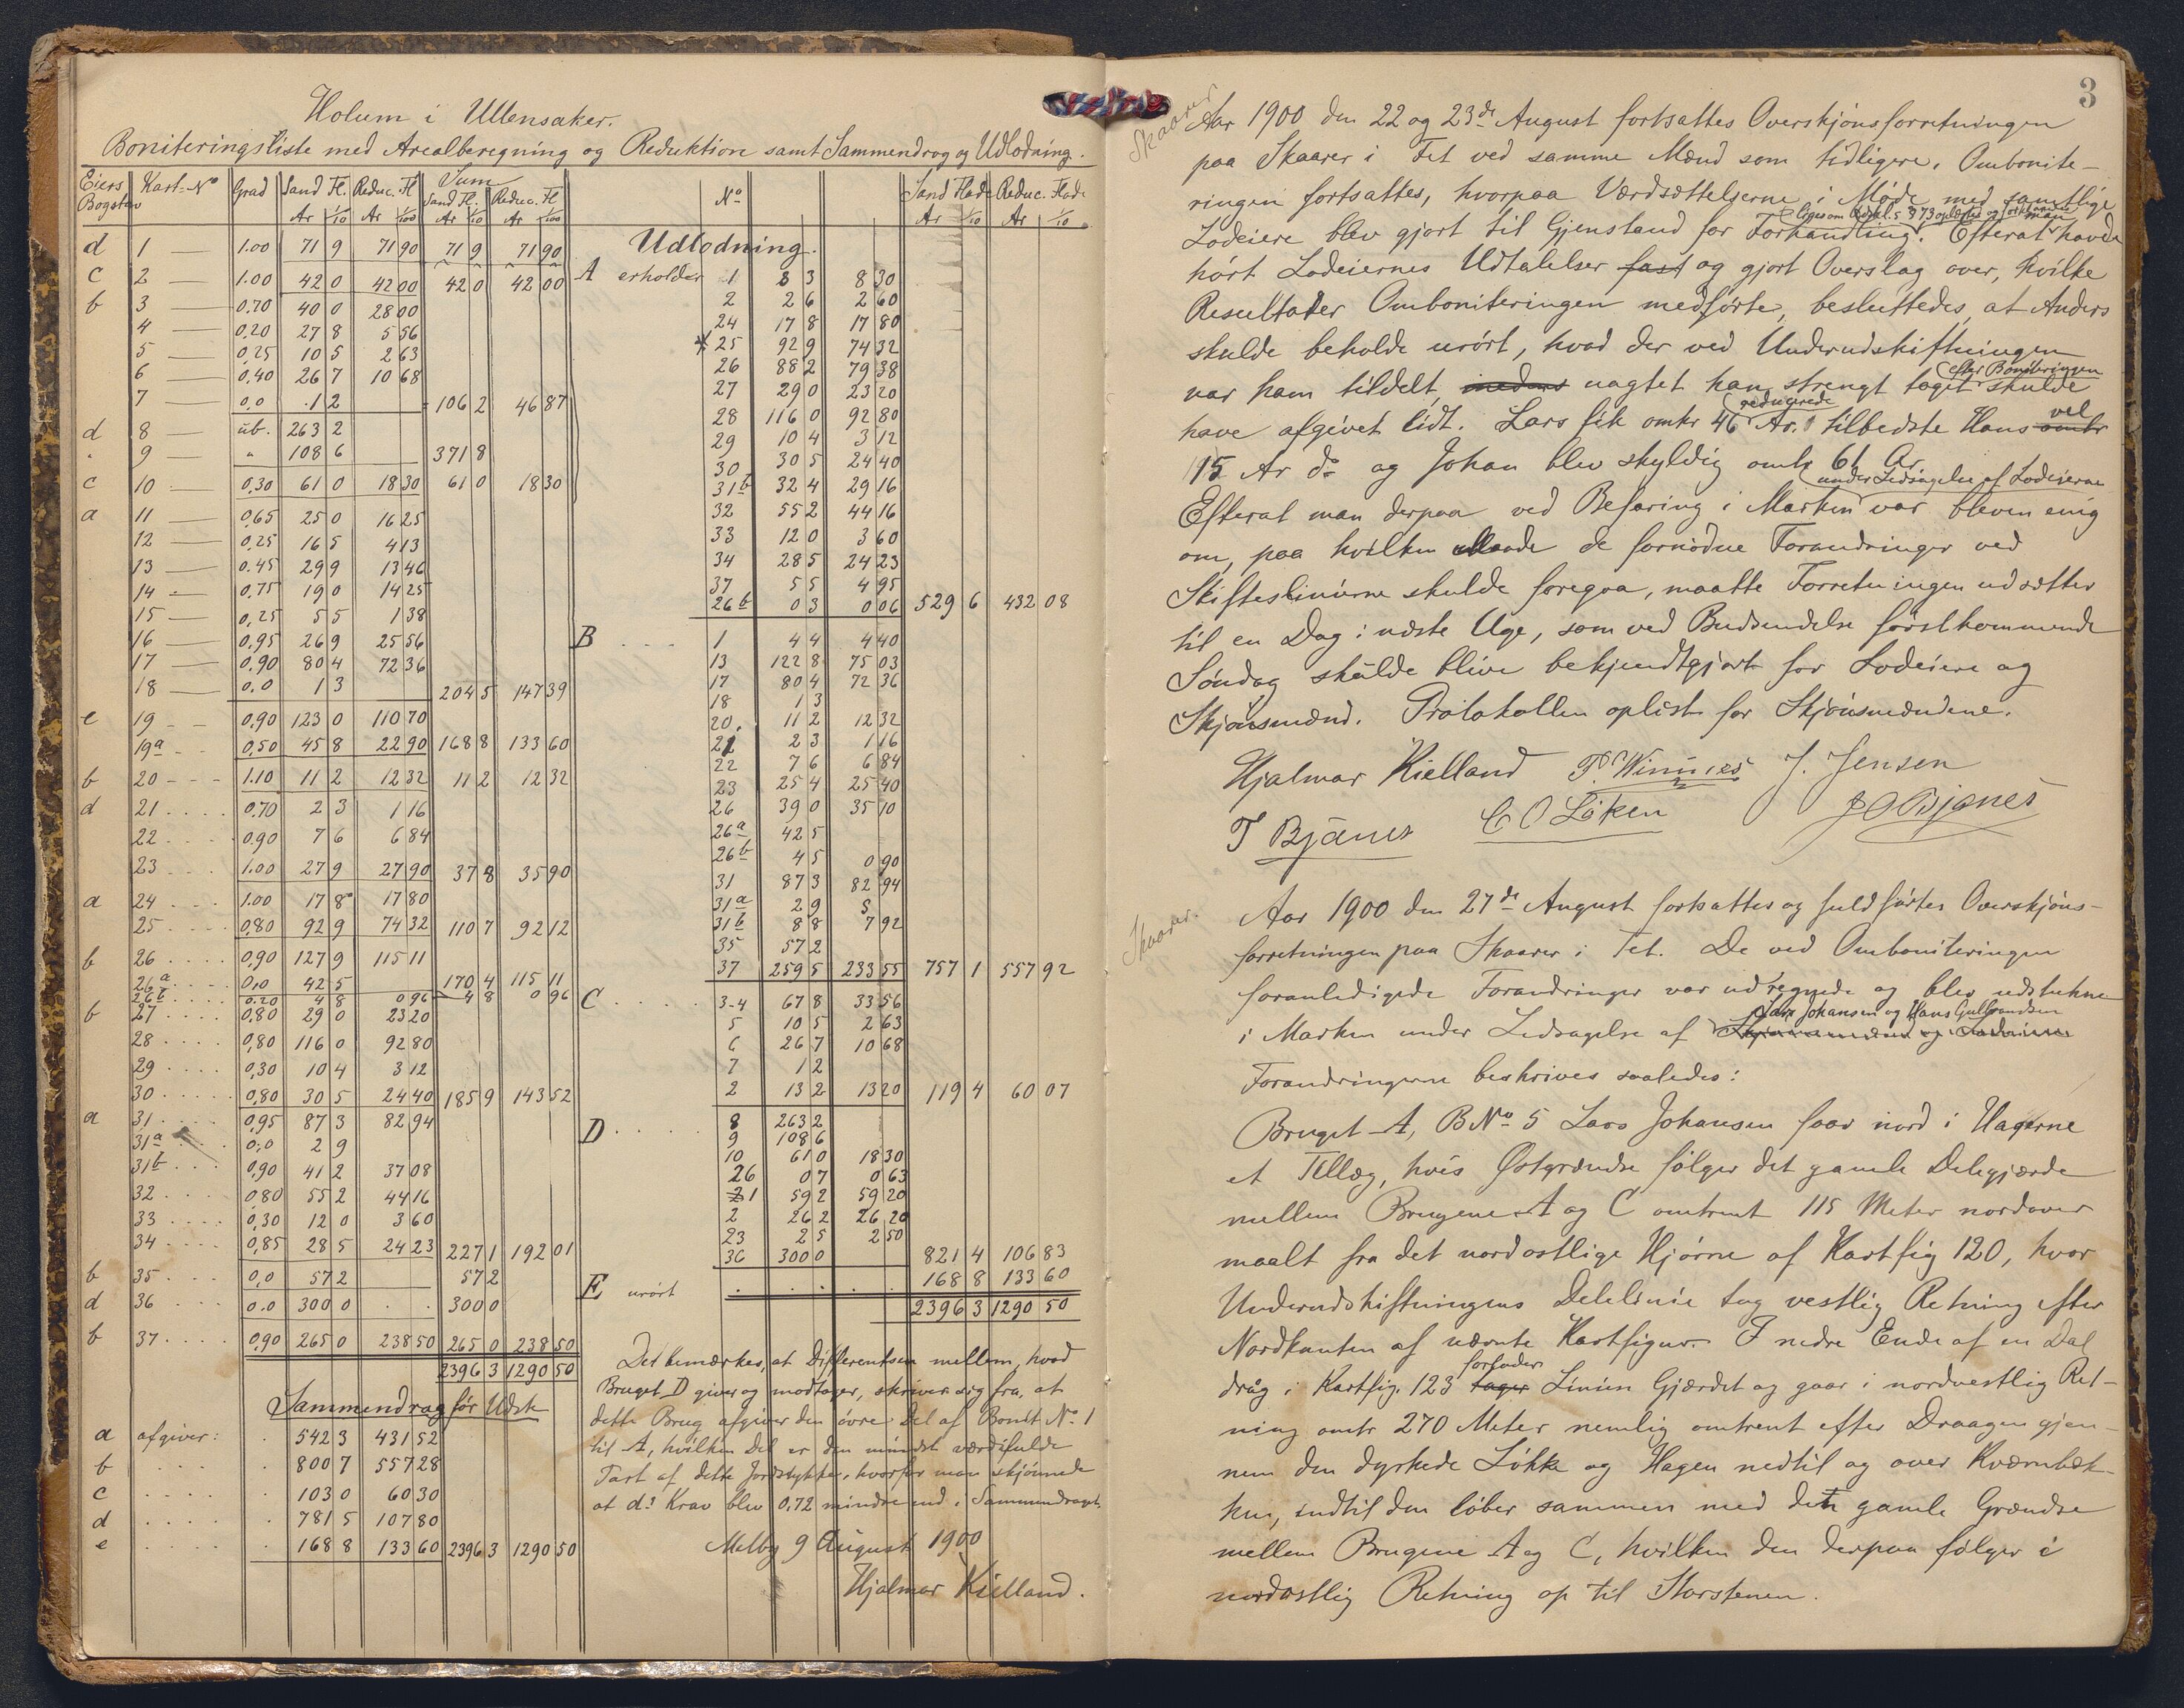 Holum i Ullensaker.
Boniteringsliste med Arealberegning og Reduktion samt Sammendrag og Udlodning.
Eiers Bogstav Kart-No Grad Sand Fl. Reduc. Fl Sum Sand Fl. Reduc. Fl
Ar 1/10 Ar 1/100 Ar 1/10 Ar 1/100
d 1 1.00 71 9 71 90 71 9 71 90
c 2 1.00 42 0 42 00 42 0 42 00
b 3 0.70 40 0 28 00
4 0,20 27 8 5 56
5 0,25 10 5 2 63
6 0,40 26 7 10 68
7 0,0 1 2 106 2 46 87
d 8 ub. 263 2
" 9 " 108 6 371 8
c 10 0,30 61 0 18 30 61 0 18 30
a 11 0,65 25 0 16 25
12 0,25 16 5 4 13
13 0.45 29 9 13 46
14 0,75 19 0 14 25
15 0,25 5 5 1 38
16 0,95 26 9 25 56
17 0,90 80 4 72 36
18 0.0 1 3 204 5 147 39
e 19 0,90 123 0 110 70
19a 0,50 45 8 22 90 168 8 133 60
b 20 1.10 11 2 12 32 11 2 12 32
d 21 0,70 2 3 1 16
22 0,90 7 6 6 84
23 1.00 27 9 27 90 37 8 35 90
a 24 1.00 17 8 17 80
25 0,80 92 9 74 32 110 7 92 12
b 26 0,90 127 9 115 11
26a 0,0 42 5 170 4 115 11
26b 0.20 4 8 0 96 4 8 0 96
b 27 0,80 29 0 23 20
28 0,80 116 0 92 80
29 0,30 10 4 3 12
30 0,80 30 5 24 40 185 9 143 52
a 31 0,95 87 3 82 94
31a 0,0 2 9
31b 0,90 41 2 37 08
32 0,80 55 2 44 16
33 0,30 12 0 3 60
34 0,85 28 5 24 23 227 1 192 01
b 35 0,0 57 2 57 2
d 36 0.0 300 0 300 0
b 37 0,90 265 0 238 50 265 0 238 50
2396 3 1290 50
Sammendrag før Udsk
a afgiver: 542 3 431 52
b 800 7 557 28
c 103 0 60 30
d 781 5 107 80
e 168 8 133 60 2396 3 1290 50
No Sand Flade Reduc. Flade
Ar 1/10 Ar 1/10
Udlodning.
A erholder 1 8 3 8 30
2 2 6 2 60
24 17 8 17 80
* 25 92 9 74 32
26 88 2 79 38
27 29 0 23 20
28 116 0 92 80
29 10 4 3 12
30 30 5 24 40
31b 32 4 29 16
32 55 2 44 16
33 12 0 3 60
34 28 5 24 23
37 5 5 4 95
26b 0 3 0 06 529 6 432 08
B 1 4 4 4 40
13 122 8 75 03
17 80 4 72 36
18 1 3
20 11 2 12 32
21 2 3 1 16
22 7 6 6 84
23 25 4 25 40
26 39 0 35 10
26a 42 5
26b 4 5 0 90
31 87 3 82 94
31a 2 9
31b 8 8 7 92
35 57 2
37 259 5 233 55 757 1 557 92
C 3-4 67 8 33 56
5 10 5 2 63
6 26 7 10 68
7 1 2
2 13 2 13 20 119 4 60 07
D 8 263 2
9 108 6
10 61 0 18 30
26 0 7 0 63
1 59 2 59 20
2 26 2 26 20
23 2 5 2 50
36 300 0 821 4 106 83
E urørt 168 8 133 60
2396 3 1290 50
Det bemærkes, at Differentsen mellem, hvad
Bruget D giver og modtager, skriver sig fra, at
dette Brug afgiver den øvre Del af Bonit No 1
til A, hvilken Del er den mindst værdifulde
Part af dette Jordstykke, hvorfor man skjønnede
at d's Krav blev 0,72 mindre end i Sammendraget.
Melby 9 August 1900
Hjalmar Kielland.
3
Skaarer
Aar 1900 den 22 og 23de August fortsattes Overskjønsforretningen
paa Skaarer i Fet ved samme Mænd som tidligere. Ombonite-
ringen fortsattes, hvorpaa Værdsættelserne i Møde med samtlige
ligesom § 73 oplæstes og forklaredes man
Lodeiere blev gjort til Gjenstand for Forhandling. Efterat havde
hørt Lodeiernes Udtalelser fast og gjort Overslag over, hvilke
Resultater Omboniteringen medførte, besluttedes, at Anders
skulde beholde urørt, hvad der ved Underudskiftningen
efter Boniteringen
var ham tildelt, medens uagtet han strengt taget skulde
reducerede vel
have afgivet lidt. Lars fik omkr 46 Ar. tilbedste Hans omkr
15 Ar do og Johan blev skyldig omkr 61 Ar
under Ledsagelse af Lodeierne
Efterat man derpaa ved Befaring i Marken var bleven enig
om, paa hvilken Maade de fornødne Forandringer ved
Skifteslinierne skulde foregaa, maatte Forretningen udsættes
til en Dag i næste Uge, som ved Budsendelse førstkommende
Søndag skulde blive bekjendtgjort for Lodeiere og
Skjønsmænd. Protokollen oplæst for Skjønsmændene.
Hjalmar Kielland P. Winnæs J. Jensen
T Bjånes C O Løken J O Bjånes
Skaarer.
Aar 1900 den 27de August fortsattes og fuldførtes Overskjøns-
forretningen paa Skaarer i Fet. De ved Omboniteringen
foranledigede Forandringer var udregnede og blev udstukne
Lars Johansen og Hans Gulbrandsen
i Marken under Ledsagelse af Skjønsmænd og Lodeierne
Forandringerne beskrives saaledes:
Bruget A, BNo 5 Lars Johansen faar nord i Hagerne
et Tillæg, hvis Østgrændse følger det gamle Delegjærde
mellem Brugene A og C omtrent 115 Meter nordover
maalt fra det nordostlige Hjørne af Kartfig 120, hvor
Underudskiftningens Delelinie tog vestlig Retning efter
Nordkanten af nævnte Kartfigur. I nedre Ende af en Dal
forlader
dråg i Kartfig. 123 tager Linien Gjærdet og gaar i nordvestlig Ret-
ning omtr 270 Meter nemlig omtrent efter Draagen gjen-
nem den dyrkede Løkke og Hagen nedtil og over Kværnbæk-
ken, indtil den løber sammen med den gamle Grændse
mellem Brugene A og C, hvilken den derpaa følger i
nordostlig Retning op til Storstenen.